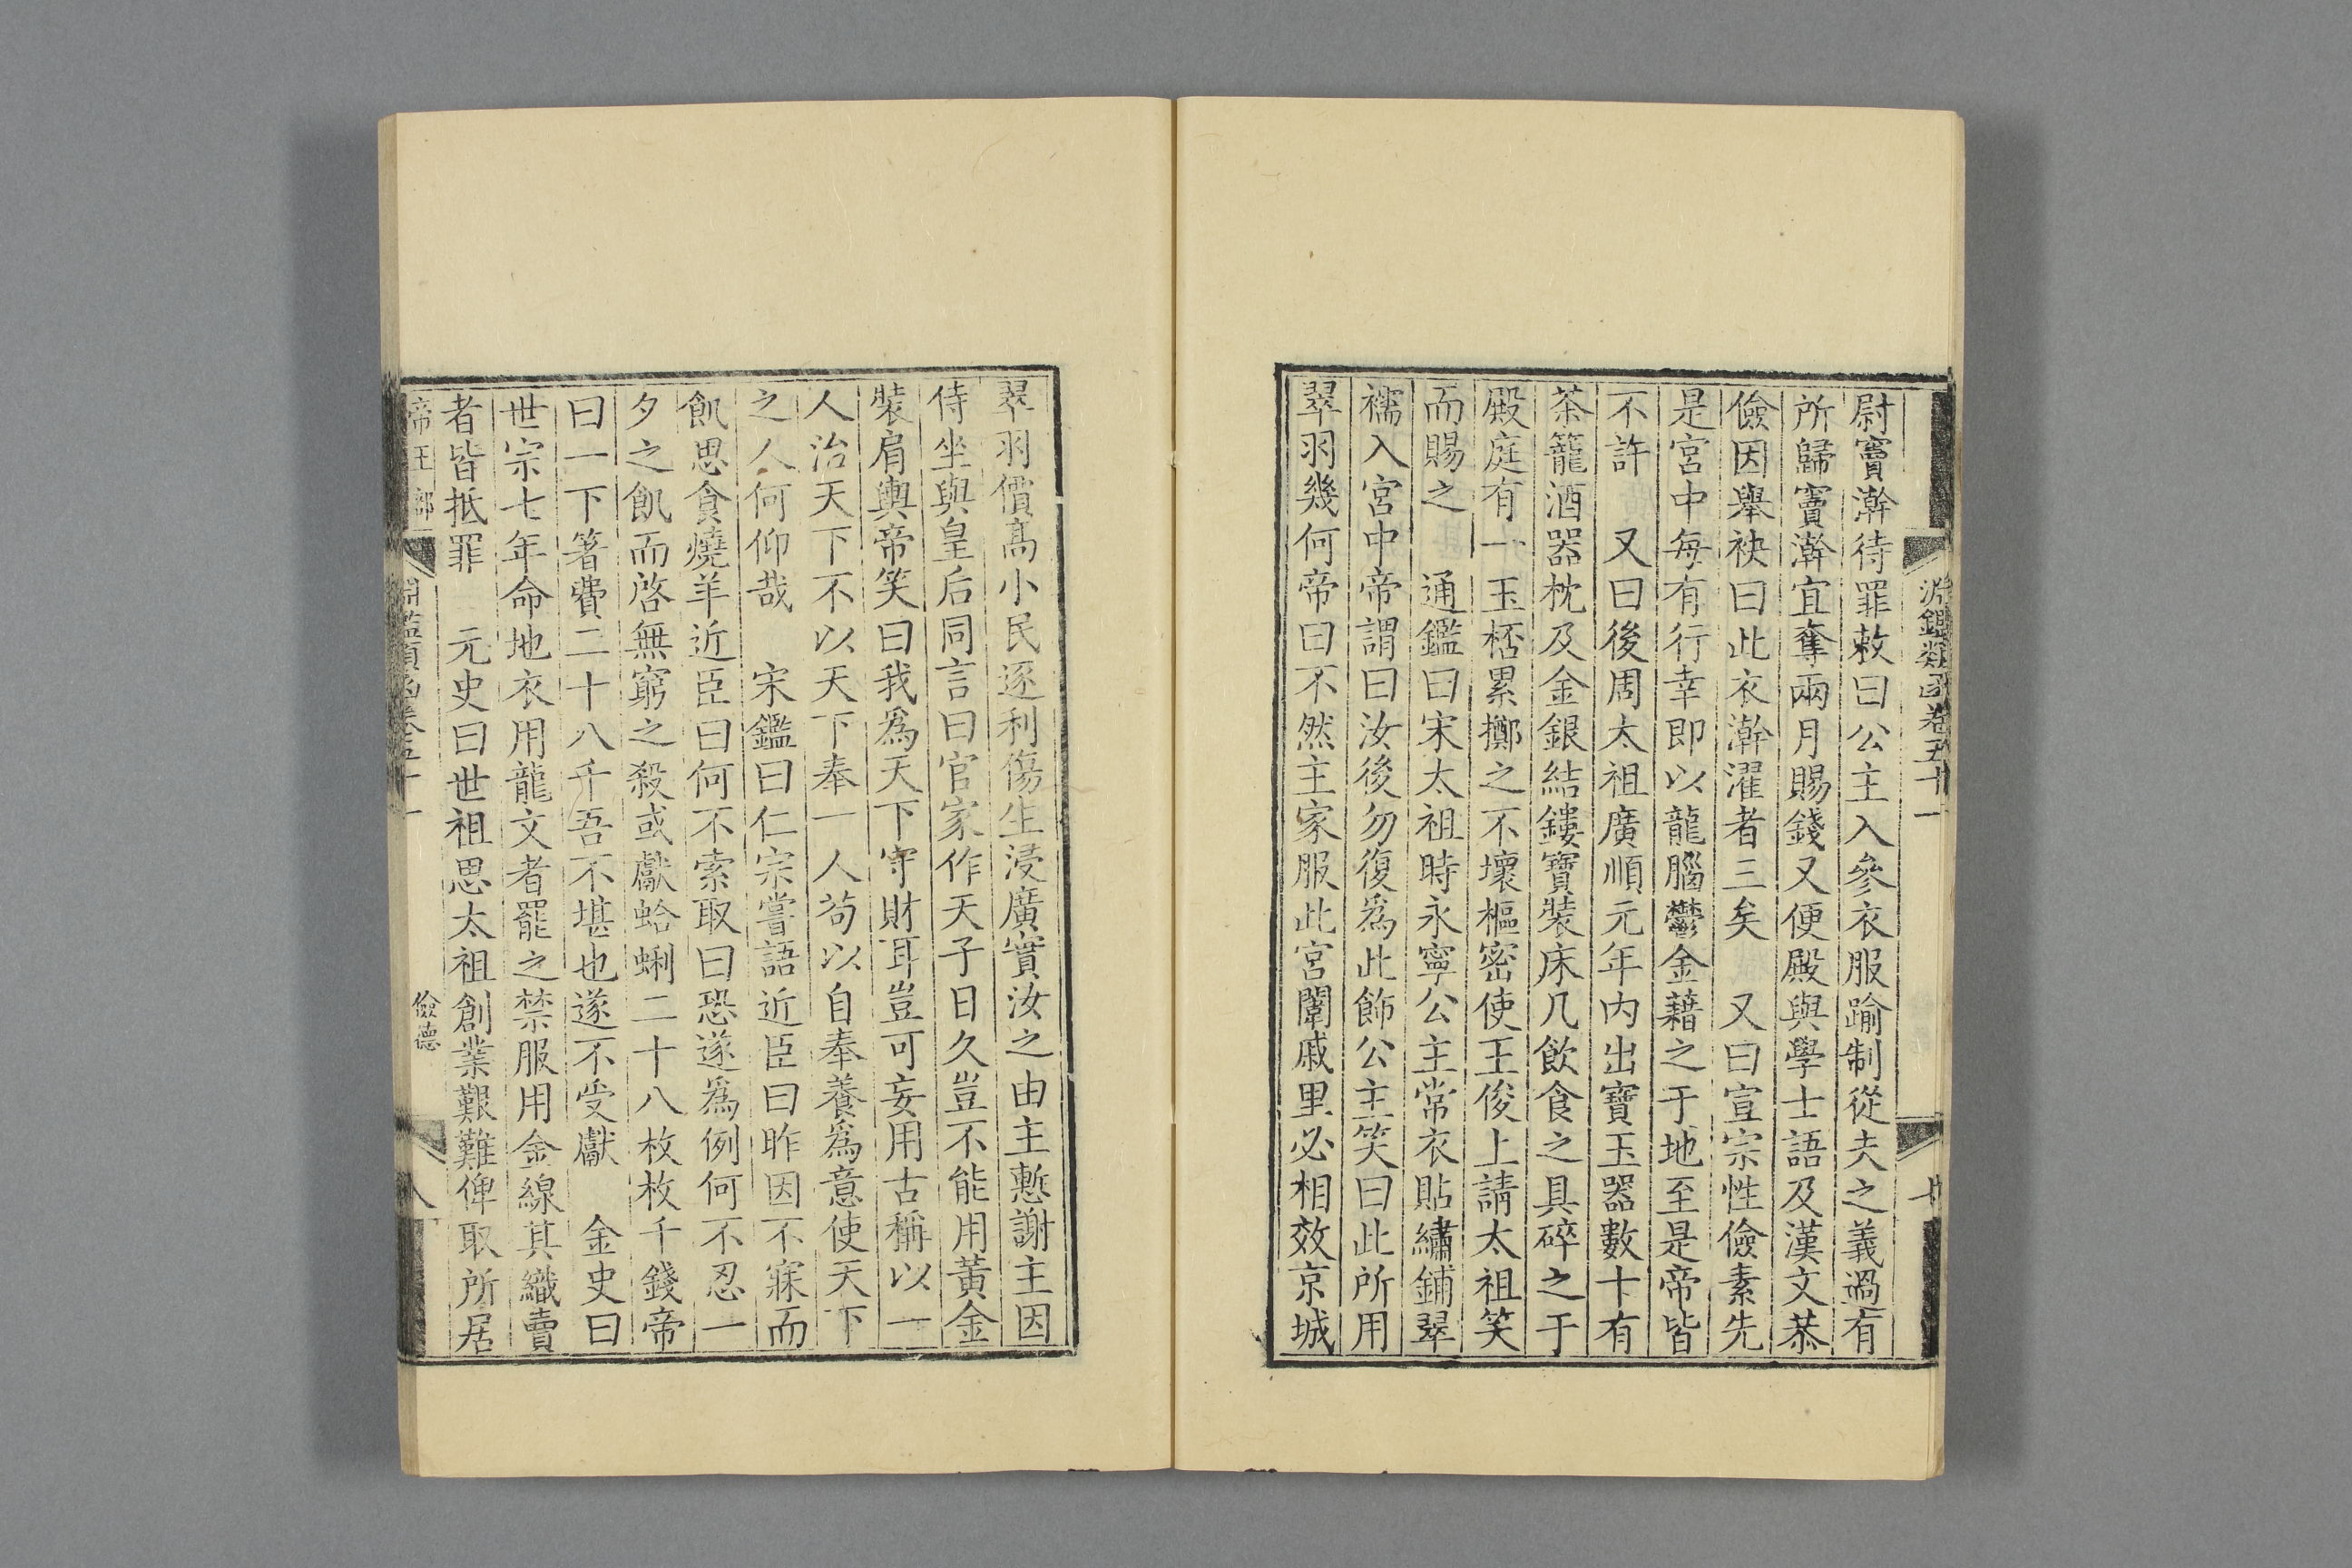 淵鑑類函卷五十一
尉竇澣待罪敕曰公主入參衣服踰制從夫之義過有
所歸竇澣宜奪兩月賜錢又便殿與學士語及漢文恭
儉因舉袂曰此衣澣濯者三矣　又曰宣宗性儉素先
是宮中每有行幸即以龍腦鬱金藉之于地至是帝皆
不許　又曰後周太祖廣順元年内出寶玉器數十有
茶籠酒器枕及金銀結鏤寶裝床几飲食之具碎之于
殿庭有一玉桮累擲之不壞樞密使王俊上請太祖笑
而賜之　通鑑曰宋太祖時永寧公主常衣貼繡鋪翠
襦入宮中帝謂曰汝後勿復爲此飾公主笑曰此所用
翠羽幾何帝曰不然主家服此宮闈戚里必相效京城
翠羽價髙小民逐利傷生浸廣實汝之由主慙謝主因
侍坐與皇后同言曰官家作天子日久豈不能用黃金
裝肩輿帝笑曰我爲天下守財耳豈可妄用古稱以一
人治天下不以天下奉一人茍以自奉養爲意使天下
之人何仰哉　宋鑑曰仁宗嘗語近臣曰昨因不寐而
飢思食燒羊近臣曰何不索取曰恐遂爲例何不忍一
夕之飢而啓無窮之殺或獻蛤蜊二十八枚枚千錢帝
曰一下箸費二十八千吾不堪也遂不受獻　金史曰
世宗七年命地衣用龍文者罷之禁服用金線其織賣
者皆抵罪　元史曰世祖思太祖創業艱難俾取所居
帝王部　淵鑑類函卷五十一　儉德　八